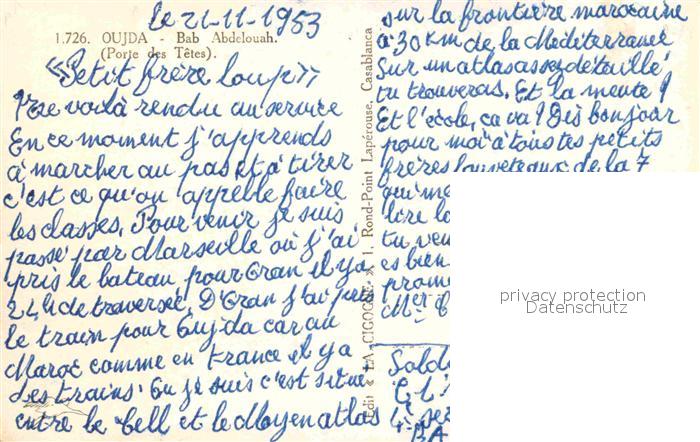 le 21-11-1953
1.726. OUJDA - Bab Abdelouah.
(Porte des Têtes).
"Petit frère loup"
Me voilà rendu au service
En ce moment j'apprends
à marcher au pas et à tirer
c'est ce qu'on appelle faire
les classes. Pour venir je suis
passé par Marseille où j'ai
pris le bateau, pour Oran il y a
24h de traversée. D'Oran j'ai pris
le train pour Oujda car au
Maroc comme en France il y a
des trains. Ou je suis c'est situé
entre le Tell et le Moyen atlas
Edit « LA CIGOGNE » 1, Rond-Point Lapérouse, Casablanca
sur la frontière marocaine
à 30 Km de la Méditerranée
Sur un atlas assez détaillé
tu trouveras. Et la meute ?
Et l'école, ça va ? Dis bonjour
pour moi à tous tes petits
frères louveteaux de la 7
qui
lire
tu
es bien
prom
privacy protection
Datenschutz
Sold